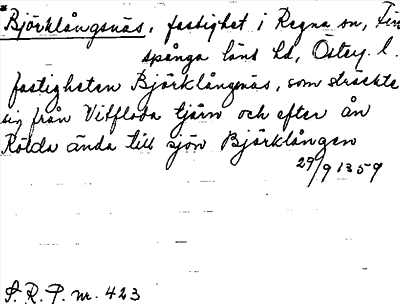 *Björklångsnäs, fastighet i Regna sn, Fin
spånga läns hd, Österg. l.
fastigheten Björklångsnäs, som sträckte
sig från Vitfloda tjärn och efter ån
Rötda ända till sjön Björklången
29/9 1359
S.R.P. nr. 423